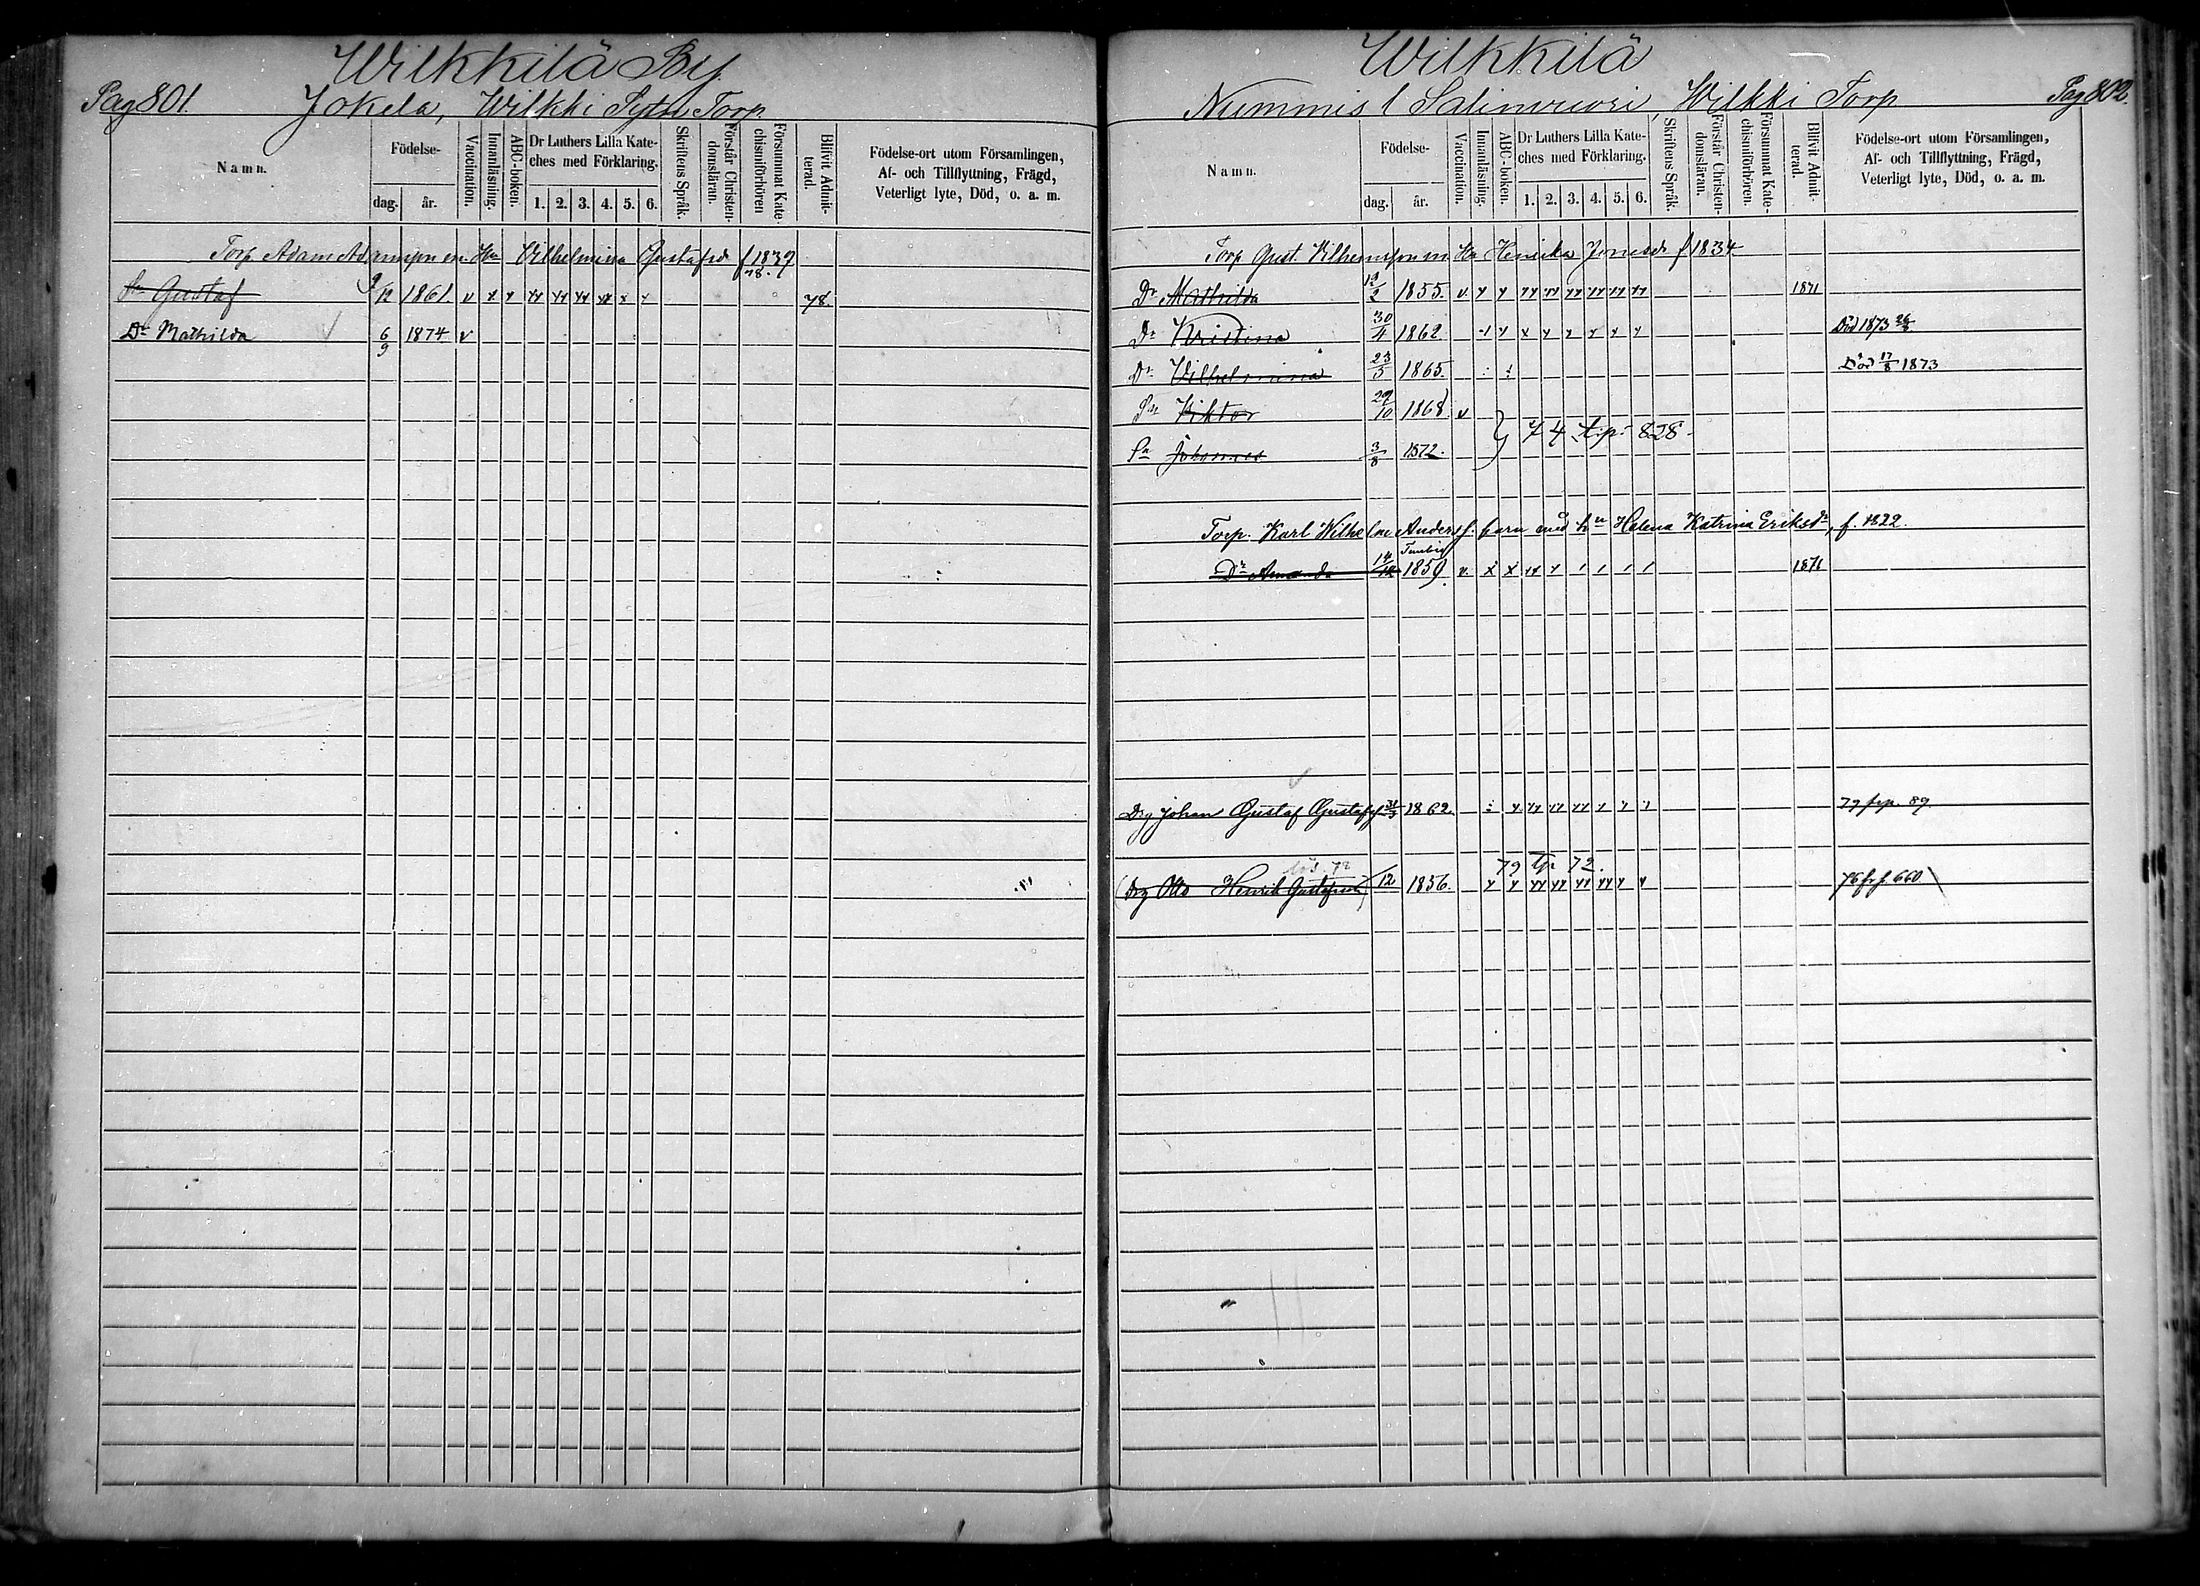 Wilkkilä By
Pag 801.
Jokela, Wilkki Torp.
Namn.
Födelse-
dag.
år.
Vaccination.
Innanläsning.
ABC-boken.
Dr Luthers Lilla Kate-
ches med Förklaring.
1. 2. 3. 4. 5. 6.
Skriftens Språk.
Förstår Christen-
domsläran.
Försummat Kate-
chismiförhören
Blifvit Admit-
terad.
Födelse-ort utom Församlingen,
Af- och Tillflyttning, Frägd,
Veterligt lyte, Död, o. a. m.
Torp. Adam Adamsson m. Hu Vilhelmina Gustafsd f 1839
Sn Gustaf 9/12 1861 v x x xx xx xx xx x x 78.
Dr Mathilda 6/9 1874 v
Wilkkilä
Pag 802.
Nummis l Salimvuori, Wilkki Torp
Namn.
Födelse-
dag.
år.
Vaccination.
Innanläsning.
ABC-boken.
Dr Luthers Lilla Kate-
ches med Förklaring.
1. 2. 3. 4. 5. 6.
Skriftens Språk.
Förstår Christen-
domsläran.
Försummat Kate-
chismiförhören.
Blifvit Admit-
terad.
Födelse-ort utom Församlingen,
Af- och Tillflyttning, Frägd,
Veterligt lyte, Död, o. a. m.
Torp Gust. Vilhelmsson m Hu Henrika Jonasdr f 1834
Dr Mathilda 12/2 1855. v. x x xx xx xx xx xx xx 1871
Dr Kristina 30/4 1862 x x x x x x x Död 1873
Dr Vilhelmina 23/5 1865. Död 17/8 1873
Sn Viktor 29/10 1868 v
74 t.p. 828
Sn Johannes 3/8 1872.
Torp. Karl Wilhelm Anderss. barn med hu Helena Katrina Eriksdr, f. 1822.
Dr Amanda 1859. v. x x xx x 1871
Drg Johan Gustaf Gustafss 31/3 1862. x xx xx xx x x x 79 frp. 89.
79 tp 72.
(Drg Otto Henrik Gustafsson) 12 1856. x x xx xx xx xx x x 76 fr p. 660